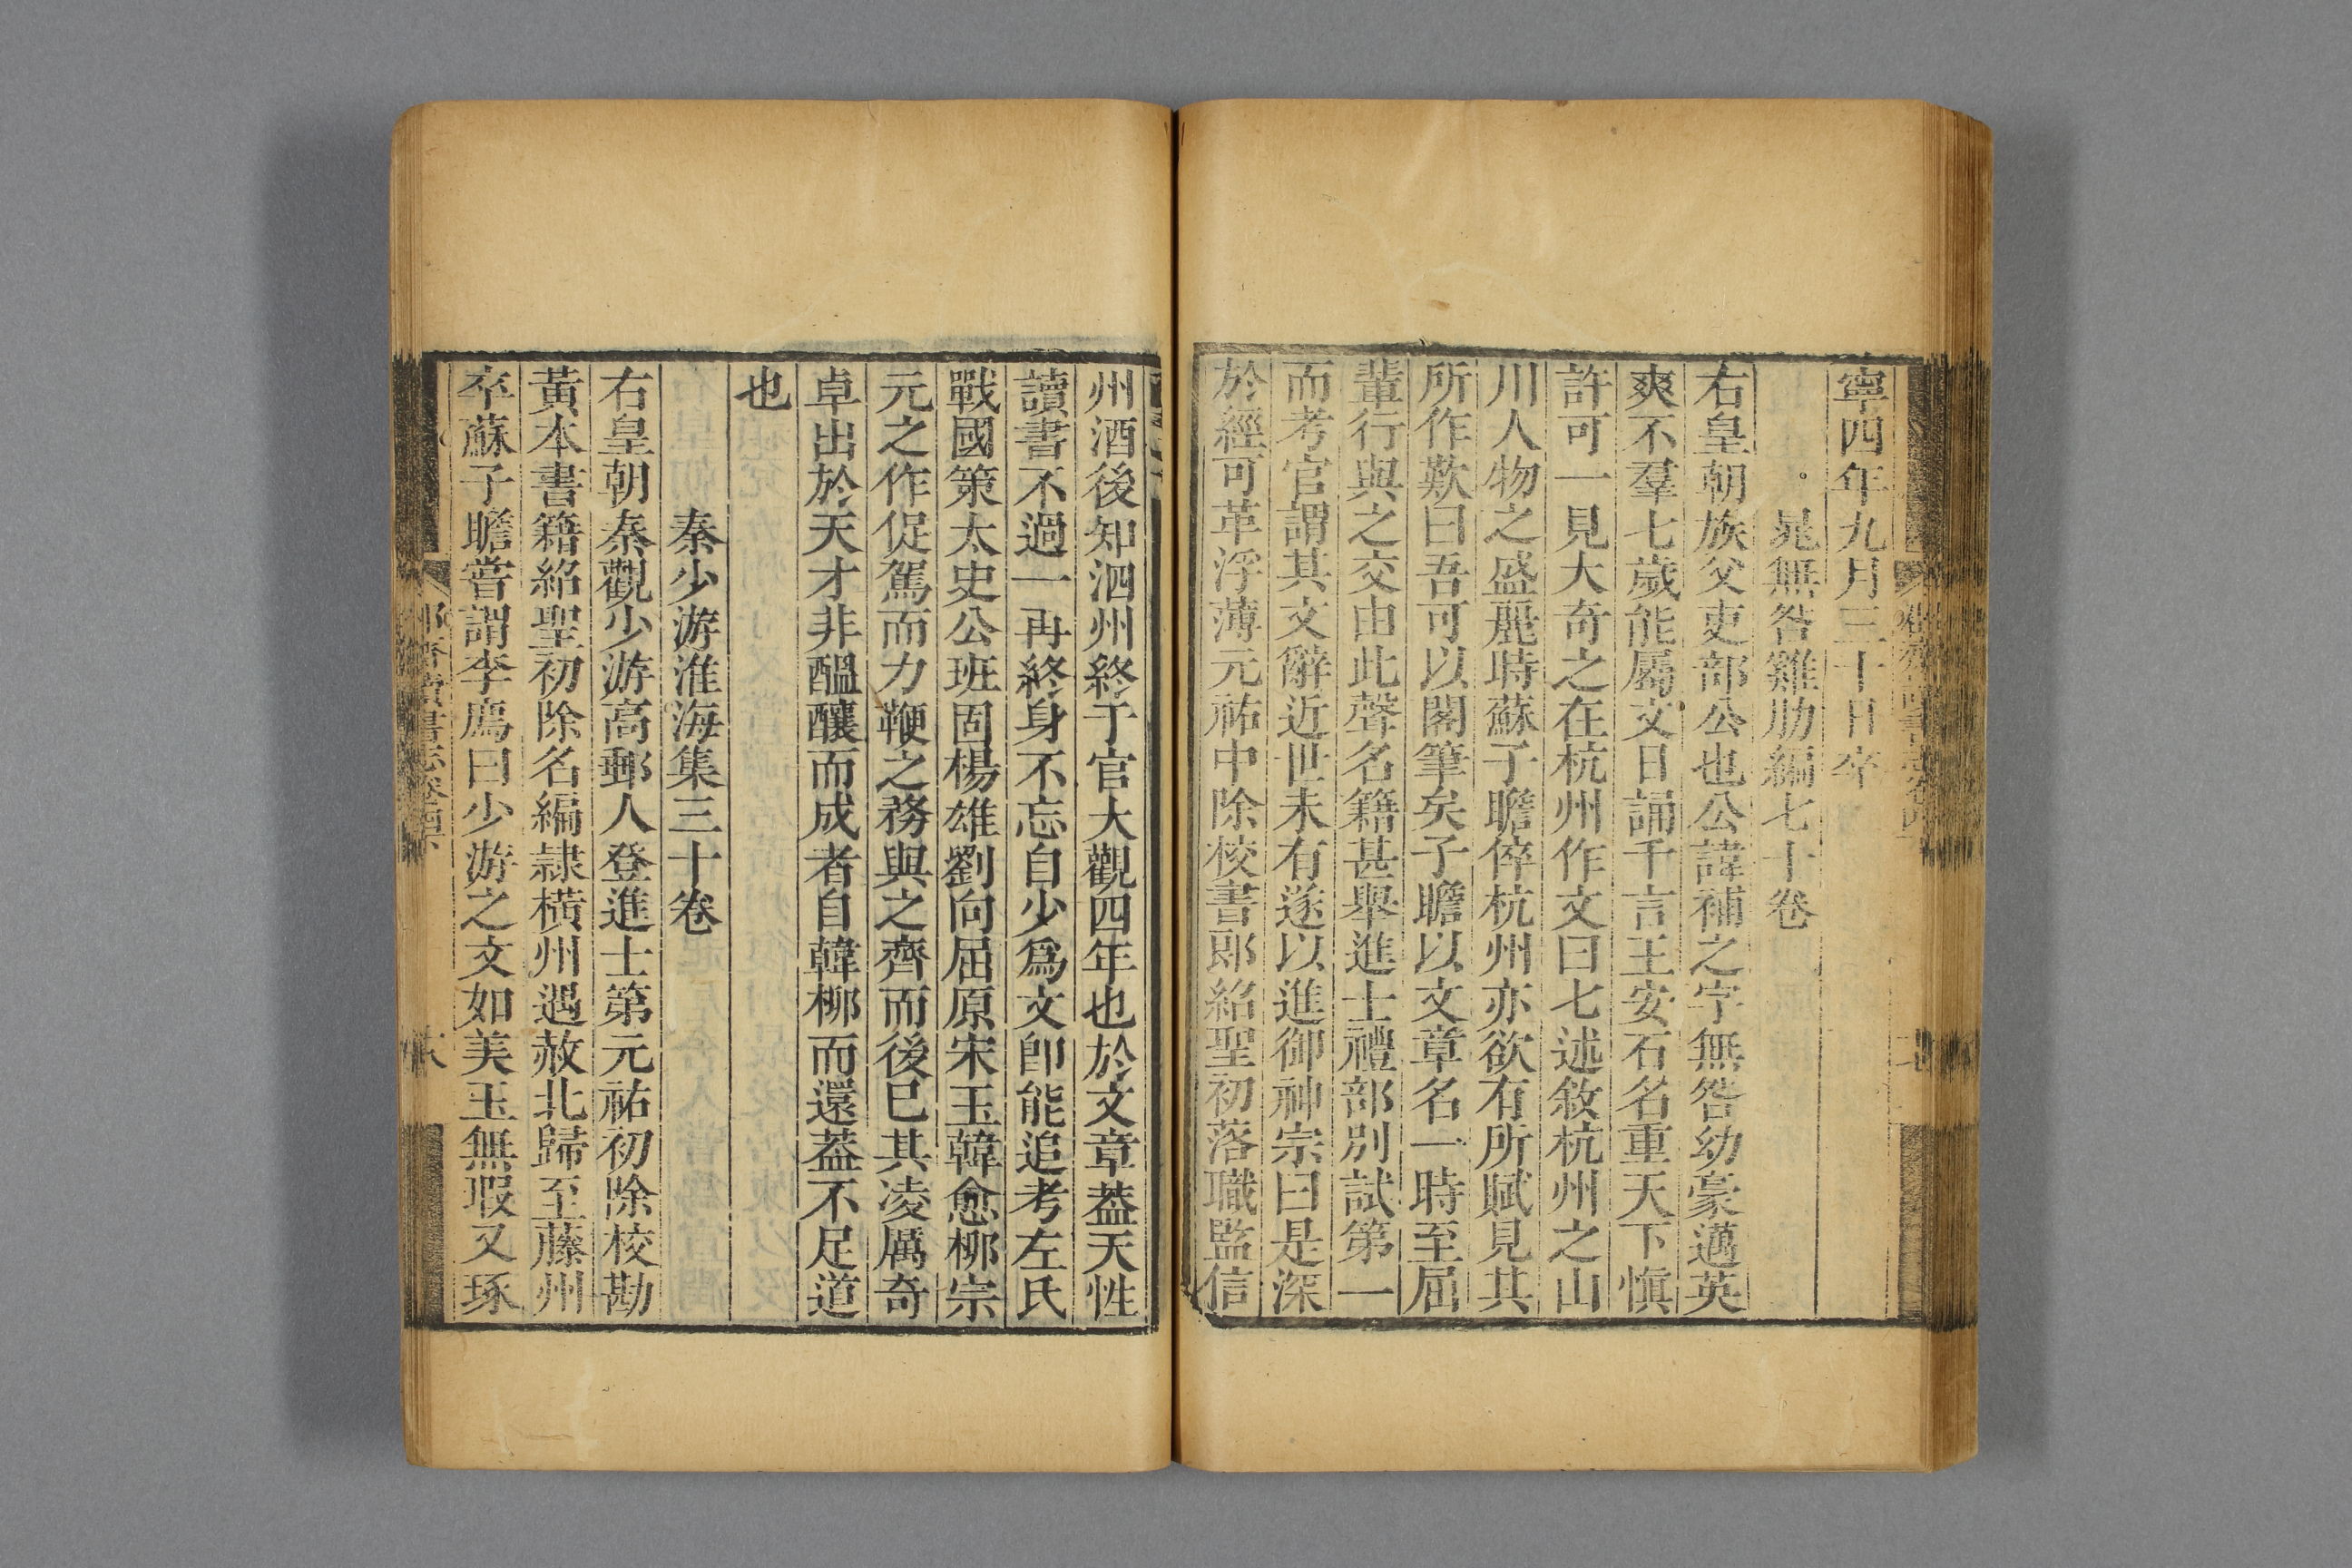 寧四年九月三十日卒
晁無咎雞肋編七十卷
右皇朝族父吏部公也公諱補之字無咎幼豪邁英
爽不羣七歲能屬文日誦千言王安石名重天下慎
許可一見大奇之在杭州作文曰七述敘杭州之山
川人物之盛麗時蘇子瞻倅杭州亦欲有所賦見其
所作歎曰吾可以閣筆矣子瞻以文章名一時至屈
輩行與之交由此聲名籍甚舉進士禮部別試第一
而考官謂其文辭近世未有遂以進御神宗曰是深
於經可革浮薄元祐中除校書郎紹聖初落職監信
州酒後知泗州終于官大觀四年也於文章葢天性
讀書不過一再終身不忘自少爲文卽能追考左氏
戰國策太史公班固楊雄劉向屈原宋玉韓愈柳宗
元之作促駕而力鞭之務與之齊而後已其凌厲奇
卓出於天才非醞釀而成者自韓柳而還葢不足道
也
秦少游淮海集三十卷
右皇朝秦觀少游高郵人登進士第元祐初除校勘
黃本書籍紹聖初除名編隸橫州遇赦北歸至藤州
卒蘇子瞻嘗謂李廌曰少游之文如美玉無瑕又琢